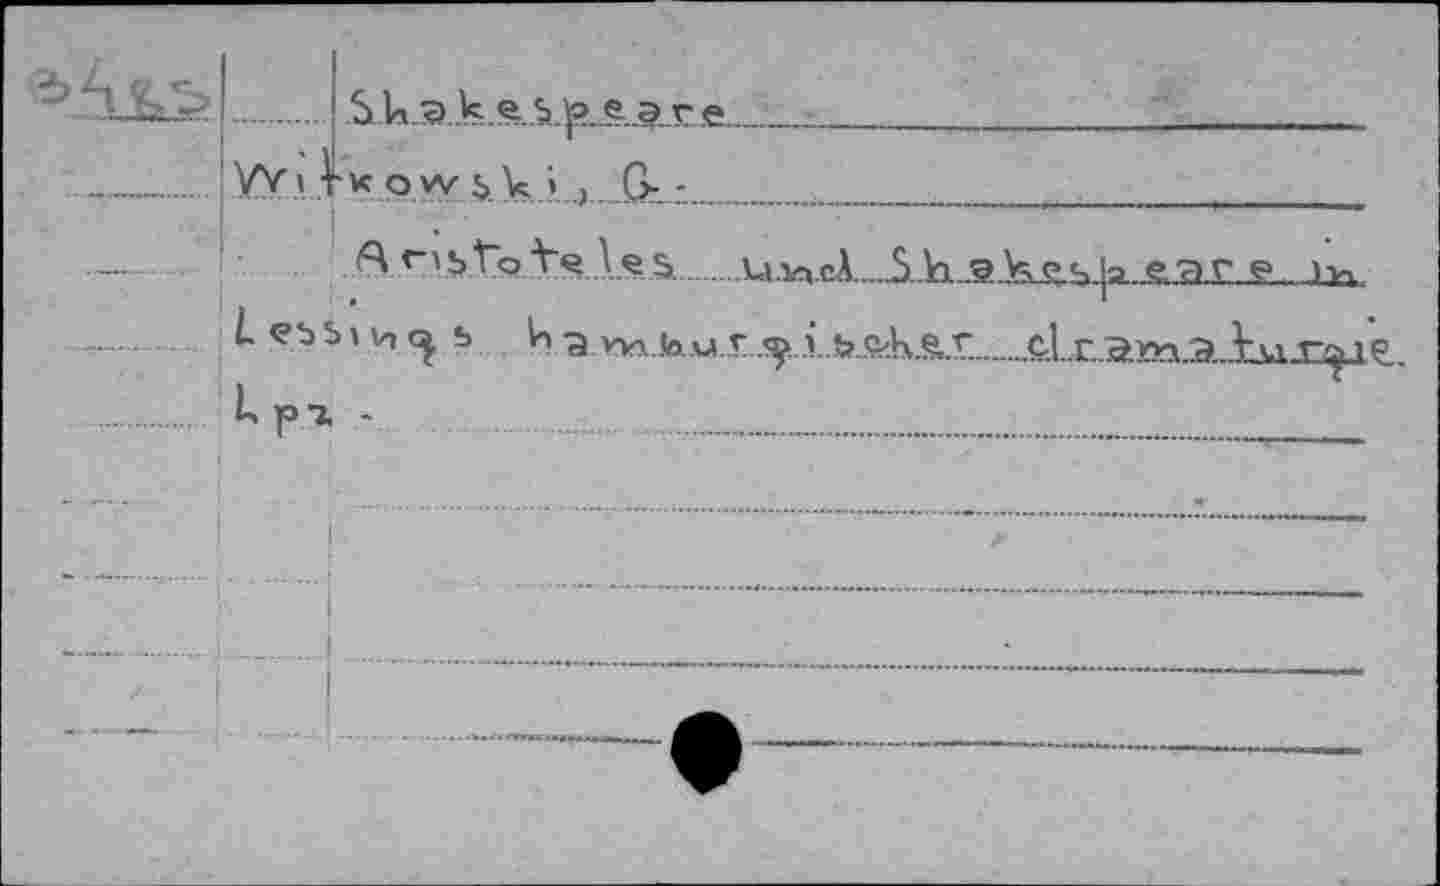 Shakespeare
Witkowski, G.
Aristoteles und Shakespeare in
Lessings hamburgischer dramaturgie.
Lpz.